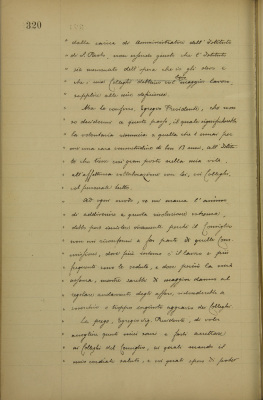 320
" dalla carica di Amministratore dell'Istituto
" di S. Paolo, non essendo giusto che l'Istituto
" sia menomato dell'opera che io gli devo e
" che i miei Colleghi debbano col loro maggior lavoro,
" supplire alle mie deficienze.
" Ma Le confesso, Egregio Presidente, che non
" so decidermi a questo passo, il quale significherebbe
" la volontaria rinuncia a quella che è ormai per
" me una cara consuetudine di ben 13 anni, all'Istitu
" to che tiene sì gran posto nella mia vita,
" all'affettuosa collaborazione con Lei, coi Colleghi,
" col personale tutto.
" Ad ogni modo, se mi manca l'animo
" di addivenire a questa risoluzione estrema,
" debbo però insistere vivamente perché il Consiglio
" non mi riconfermi a far parte di quelle Com
" missioni, dove più intenso è il lavoro e più
" frequenti sono le sedute, e dove perciò la mia
" assenza, mentre sarebbe di maggior danno al
" regolare andamento degli affari, riuscirebbe di
" e troppo ingiusto aggravio dei Colleghi.
" La prego, Egregio Sig. Presidente, di voler
" accogliere questi miei sensi e farli accettare
" ai Colleghi del Consiglio, ai quali mando il
" mio cordiale saluto, e coi quali spero di poter